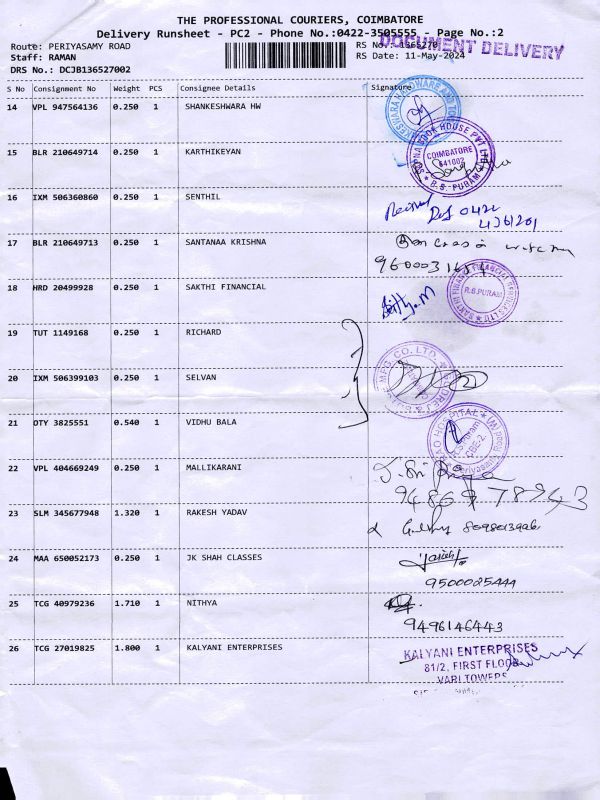 THE PROFESSIONAL COURIERS, COIMBATORE
Delivery Runsheet - PC2 - Phone No.:0422-3505555 - Page No.:2
Route: PERIYASAMY ROAD
RS No.: 1365270
DOCUMENT DELIVERY
Staff: RAMAN
RS Date: 11-May-2024
DRS No.: DCJB136527002
S No Consignment No Weight PCS Consignee Details Signature
14 VPL 947564136 0.250 1 SHANKESHWARA HW
BOOK HOUSE PVT LTD
COIMBATORE
641002
R.S. PURAM
15 BLR 210649714 0.250 1 KARTHIKEYAN
16 IXM 506360860 0.250 1 SENTHIL
Received
0422
4361201
17 BLR 210649713 0.250 1 SANTANAA KRISHNA
18 HRD 20499928 0.250 1 SAKTHI FINANCIAL
SAKTHI FINANCIAL SERVICES LTD
R.S.PURAM
19 TUT 1149168 0.250 1 RICHARD
20 IXM 506399103 0.250 1 SELVAN
MFG. CO. LTD.
21 OTY 3825551 0.540 1 VIDHU BALA
RAO HOSPITAL
R.S.Puram
CBE-2
22 VPL 404669249 0.250 1 MALLIKARANI
23 SLM 345677948 1.320 1 RAKESH YADAV
24 MAA 650052173 0.250 1 JK SHAH CLASSES
9500025444
25 TCG 40979236 1.710 1 NITHYA
9496146443
26 TCG 27019825 1.800 1 KALYANI ENTERPRISES
KALYANI ENTERPRISES
81/2, FIRST FLOOR
VARI TOWERS